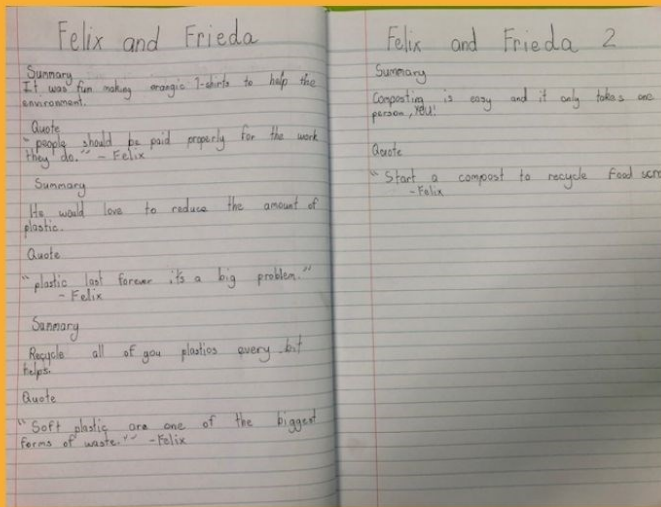 Felix and Frieda
Summary
It was fun making orangic T-shirts to help the
environment.
Quote
"people should be paid properly for the work
they do." - Felix
Summary
He would love to reduce the amount of
plastic.
Quote
"plastic last forever it's a big problem."
- Felix
Summary
Recycle all of you plastics every bit
helps.
Quote
"Soft plastic are one of the biggest
forms of waste." - Felix
Felix and Frieda 2
Summary
Composting is easy and it only takes one
person, YOU!
Quote
"Start a compost to recycle food scra
- Felix